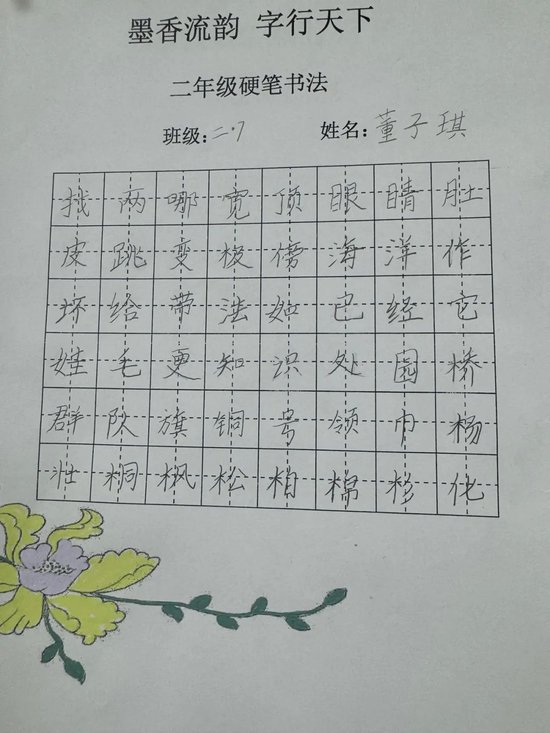 墨香流韵 字行天下
二年级硬笔书法
班级：二.7 姓名：董子琪
找两哪宽顶眼睛肚
皮跳变极傍海洋作
坏给带法如已经它
娃毛更知识处园桥
群队旗铜号领巾杨
壮桐枫松柏棉杉化